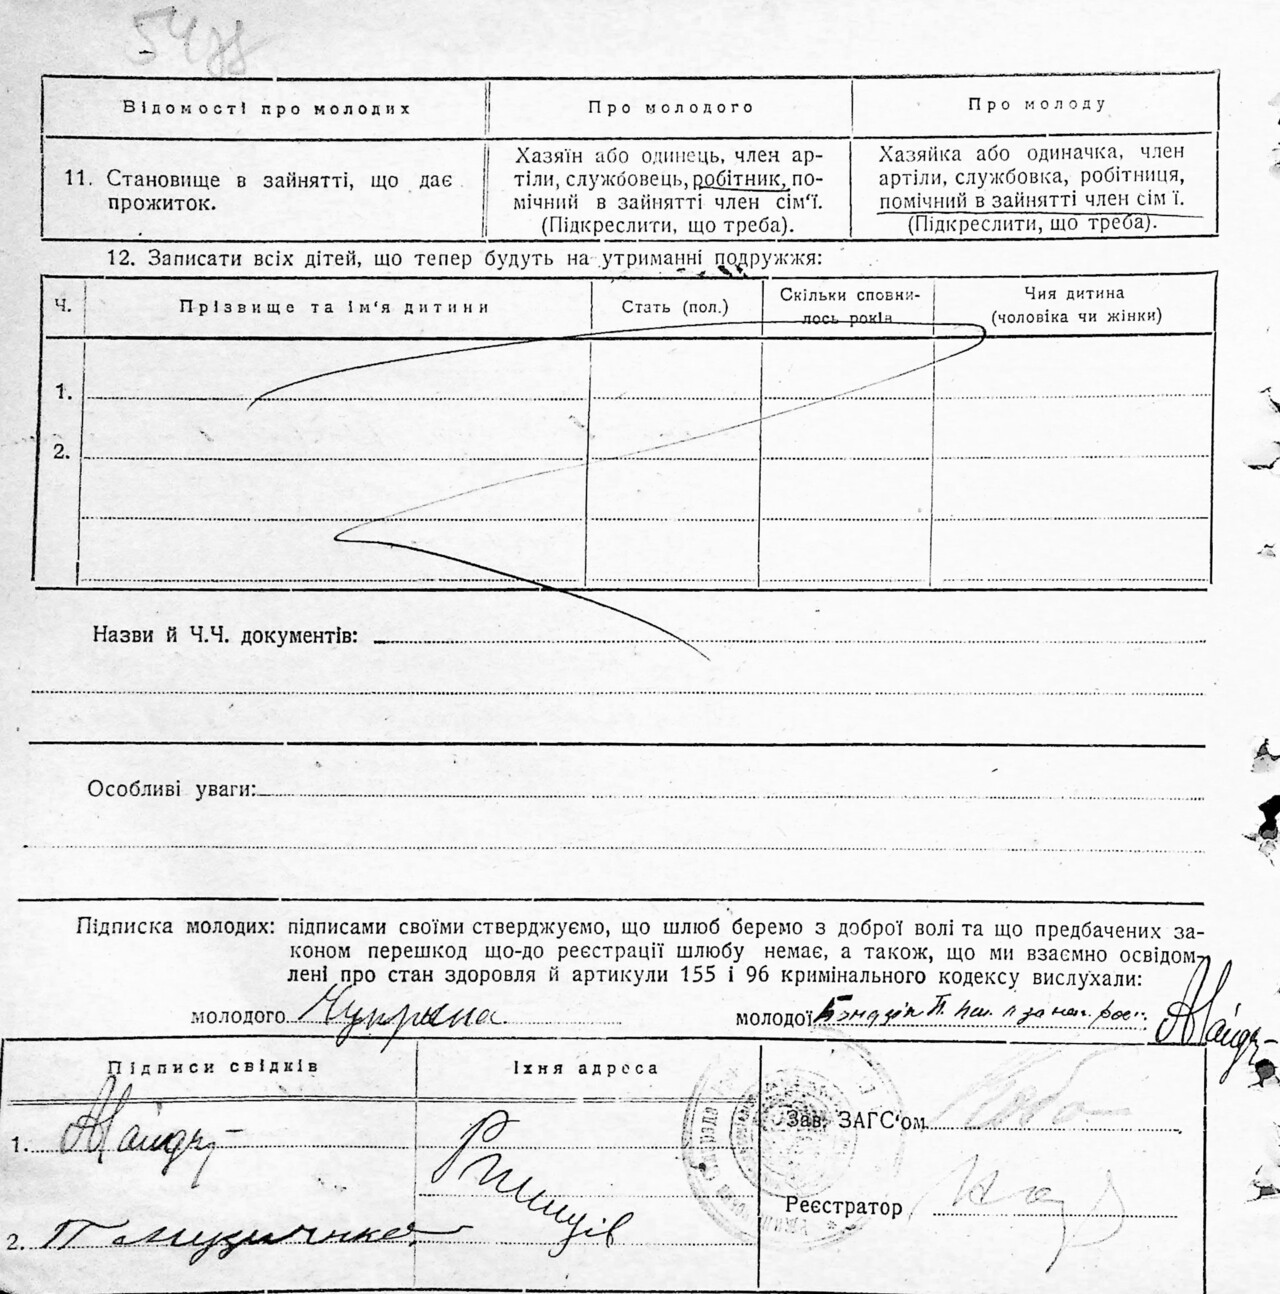 Відомості про молодих
Про молодого
Про молоду
11. Становище в зайнятті, що дає
прожиток.
Хазяїн або одинець, член ар-
тіли, службовець, робітник, по-
мічний в зайнятті член сім'ї.
(Підкреслити, що треба).
Хазяйка або одиначка, член
артіли, службовка, робітниця,
помічний в зайнятті член сім ї.
(Підкреслити, що треба).
12. Записати всіх дітей, що тепер будуть на утриманні подружжя:
Ч.
Прізвище та ім'я дитини
Стать (пол.)
Скільки сповни-
лось років
Чия дитина
(чоловіка чи жінки)
1.
2.
Назви й Ч.Ч. документів:
Особливі уваги:
Підписка молодих: підписами своїми стверджуємо, що шлюб беремо з доброї волі та що предбачених за-
коном перешкод що-до реєстрації шлюбу немає, а також, що ми взаємно освідом-
лені про стан здоровля й артикули 155 і 96 кримінального кодексу вислухали:
молодого Чуприна
молодої
Підписи свідків
Їхня адреса
1.
2.
Ржищів
Зав. ЗАГС'ом
Реєстратор